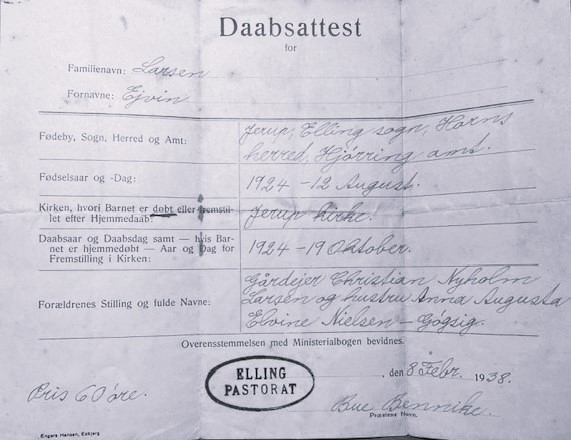 Daabsattest
for
Familienavn: Larsen
Fornavne: Ejvin
Fødeby, Sogn, Herred og Amt: Jerup, Elling sogn, Horns
herred, Hjørring amt.
Fødselsaar og -Dag: 1924 - 12 August.
Kirken, hvori Barnet er døbt eller fremstil-
let efter Hjemmedaab: Jerup kirke.
Daabsaar og Daabsdag samt — hvis Bar-
net er hjemmedøbt — Aar og Dag for
Fremstilling i Kirken: 1924 - 19 Oktober.
Forældrenes Stilling og fulde Navne: Gårdejer Christian Nyholm
Larsen og hustru Anna Augusta
Elvine Nielsen - Gøgsig.
Overensstemmelsen med Ministerialbogen bevidnes.
ELLING
PASTORAT
, den 8 Febr. 1938.
Pris 60 øre.
Bue Bennike.
Præstens Navn.
Engers Hansen, Esbjerg